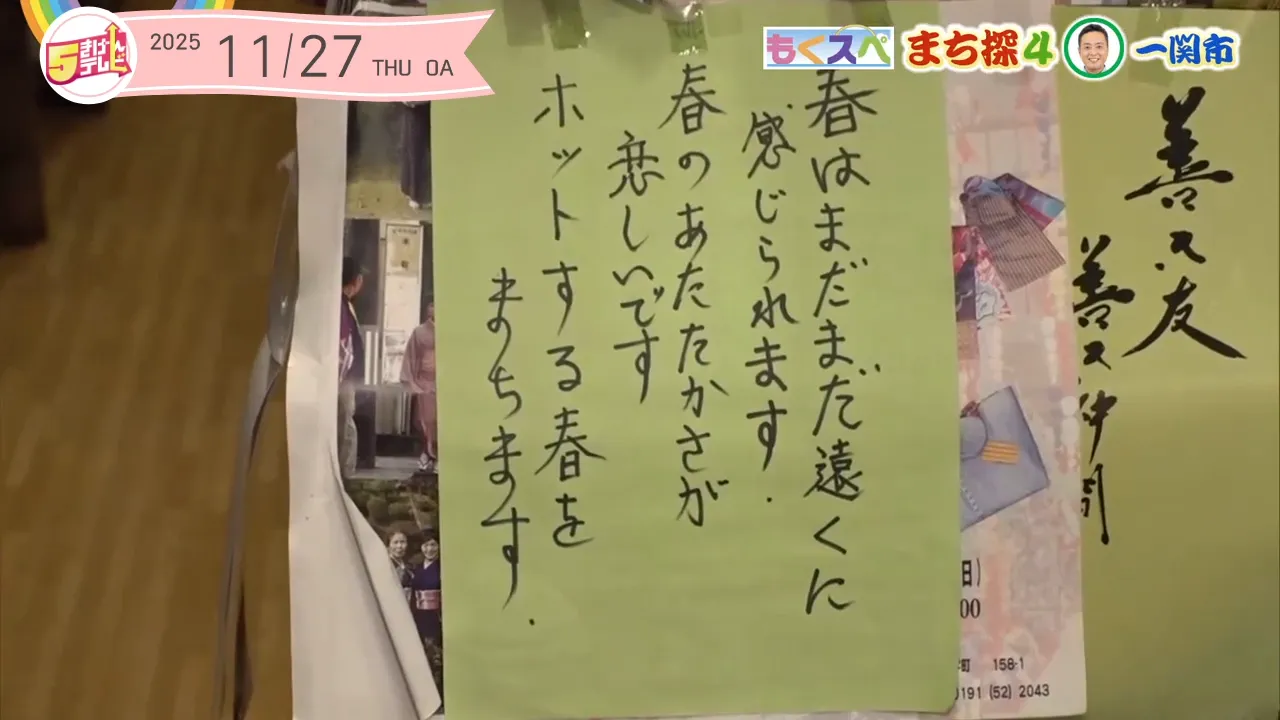 5きげんテレビ
2025 11/27 THU OA
もくスペ まち探4 一関市
春はまだまだ遠くに
感じられます.
春のあたたかさが
恋しいです
ホットする春を
まちます.
善ス友
善ス仲間
日)
00
町 158-1
0191 (52) 2043